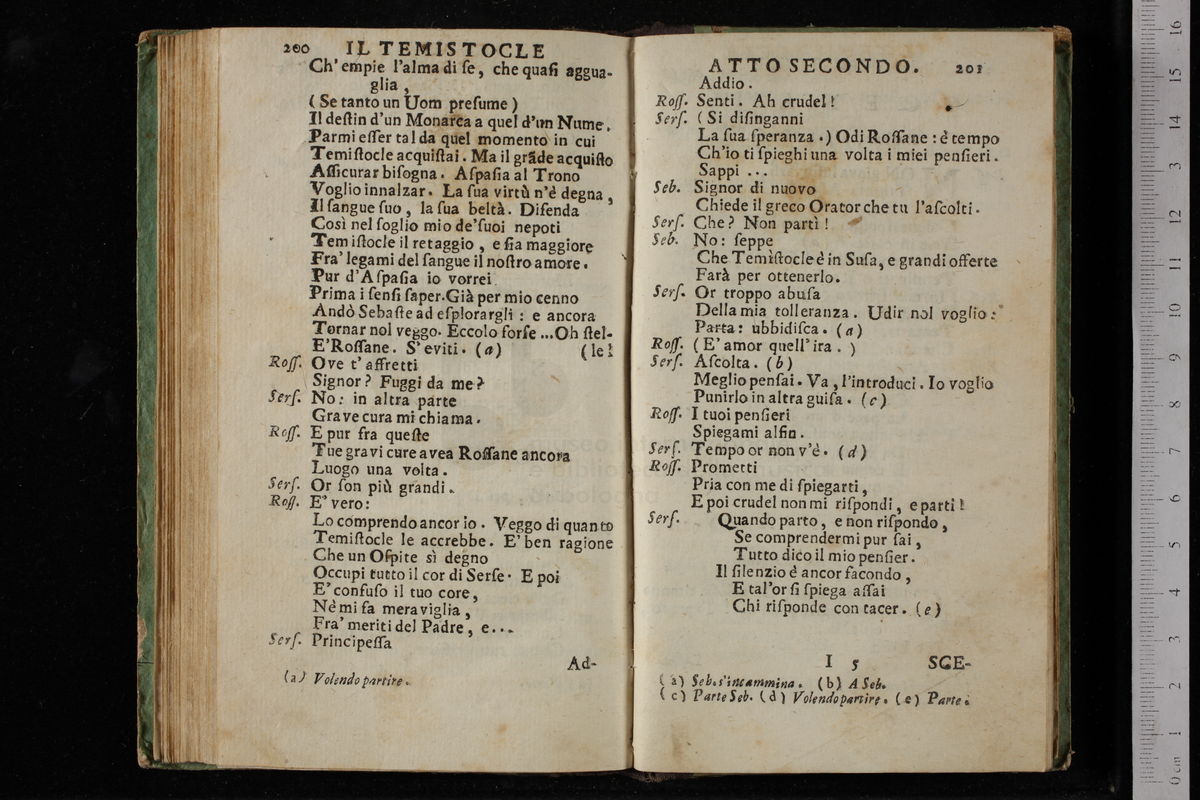 200 IL TEMISTOCLE
Ch'empie l'alma di ſe, che quaſi aggua-
glia,
(Se tanto un Uom preſume)
Il deſtin d'un Monarca a quel d'un Nume.
Parmi eſſer tal da quel momento in cui
Temiſtocle acquiſtai. Ma il grãde acquiſto
Aſſicurar biſogna. Aſpaſia al Trono
Voglio innalzar. La ſua virtù n'è degna,
Il ſangue ſuo, la ſua beltà. Difenda
Così nel ſoglio mio de'ſuoi nepoti
Temiſtocle il retaggio, e ſia maggiore
Fra' legami del ſangue il noſtro amore.
Pur d'Aſpaſia io vorrei
Prima i ſenſi ſaper. Già per mio cenno
Andò Sebaſte ad eſplorargli: e ancora
Tornar nol veggo. Eccolo forſe ... Oh ſtel-
E'Roſſane. S'eviti. (a) (le!
Roſſ. Ove t'affretti
Signor? Fuggi da me?
Serſ. No: in altra parte
Grave cura mi chiama.
Roſſ. E pur fra queſte
Tue gravi cure avea Roſſane ancora
Luogo una volta.
Serſ. Or ſon più grandi.
Roſſ. E' vero:
Lo comprendo ancor io. Veggo di quanto
Temiſtocle le accrebbe. E' ben ragione
Che un Oſpite sì degno
Occupi tutto il cor di Serſe. E poi
E' confuſo il tuo core,
Nè mi fa meraviglia,
Fra' meriti del Padre, e...
Serſ. Principeſſa
Ad-
(a) Volendo partire.
ATTO SECONDO. 201
Addio.
Roſſ. Senti. Ah crudel!
Serſ. (Si diſinganni
La ſua ſperanza.) Odi Roſſane: è tempo
Ch'io ti ſpieghi una volta i miei penſieri.
Sappi ...
Seb. Signor di nuovo
Chiede il greco Orator che tu l'aſcolti.
Serſ. Che? Non partì!
Seb. No: ſeppe
Che Temiſtocle è in Suſa, e grandi offerte
Farà per ottenerlo.
Serſ. Or troppo abuſa
Della mia tolleranza. Udir nol voglio:
Parta: ubbidiſca. (a)
Roſſ. (E' amor quell' ira. )
Serſ. Aſcolta. (b)
Meglio penſai. Va, l'introduci. Io voglio
Punirlo in altra guiſa. (c)
Roſſ. I tuoi penſieri
Spiegami alfin.
Serſ. Tempo or non v'è. (d)
Roſſ. Prometti
Pria con me di ſpiegarti,
E poi crudel non mi riſpondi, e parti!
Serſ. Quando parto, e non riſpondo,
Se comprendermi pur ſai,
Tutto dico il mio penſier.
Il ſilenzio è ancor facondo,
E tal'or ſi ſpiega aſſai
Chi riſponde con tacer. (e)
I 5 SCE-
(a) Seb. s'incammina. (b) A Seb.
(c) Parte Seb. (d) Volendo partire. (e) Parte.